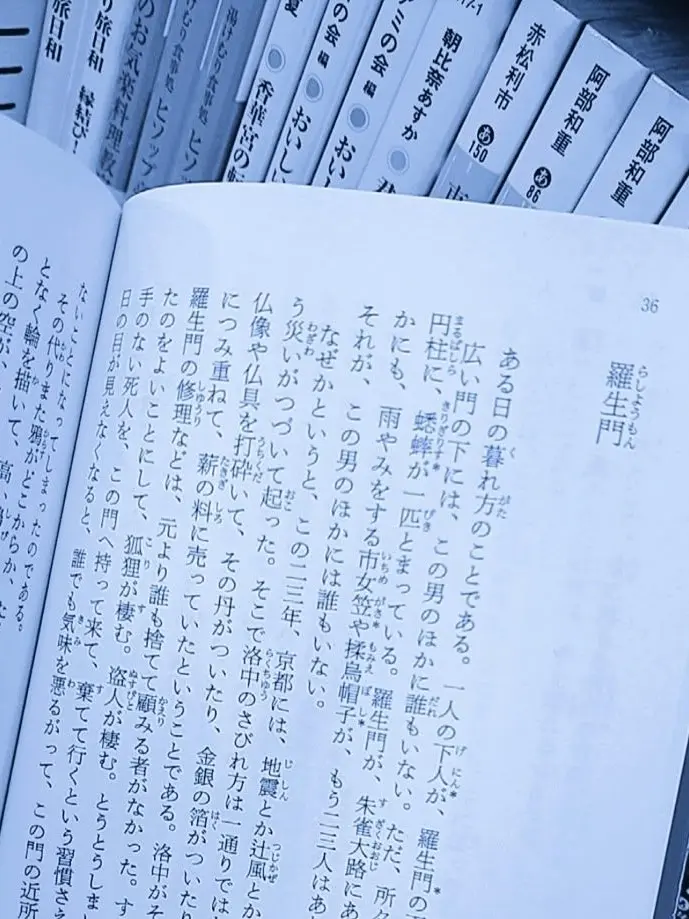 り旅日和
旅日和 縁結び!
のお気楽料理教
湯けむり食事処 ヒソップ
湯けむり食事処 ヒソップ
夏
香華宮の転
の会 編
おいしい
アミの会 編
おい
17-1
朝比奈あすか
君
赤松利市
あ
150
阿部和重
あ
86
阿部和重
36
羅生門
らしようもん
ある日の暮れ方のことである。一人の下人が、羅生門の下
広い門の下には、この男のほかに誰もいない。ただ、所々
円柱に、蟋蟀が一匹とまっている。羅生門が、朱雀大路にあ
かにも、雨やみをする市女笠や揉烏帽子が、もう二三人はあ
それが、この男のほかには誰もいない。
なぜかというと、この二三年、京都には、地震とか辻風とか
う災いがつづいて起った。そこで洛中のさびれ方は一通りでは
仏像や仏具を打砕いて、その丹がついたり、金銀の箔がついたり
につみ重ねて、薪の料に売っていたということである。洛中がそ
羅生門の修理などは、元より誰も捨てて顧みる者がなかった。す
たのをよいことにして、狐狸が棲む。盗人が棲む。とうとうしま
手のない死人を、この門へ持って来て、棄てて行くという習慣さえ
日の目が見えなくなると、誰でも気味を悪るがって、この門の近所
ないことになってしまったのである。
その代りまた鴉がどこからか、た
となく輪を描いて、高い
の上の空が、